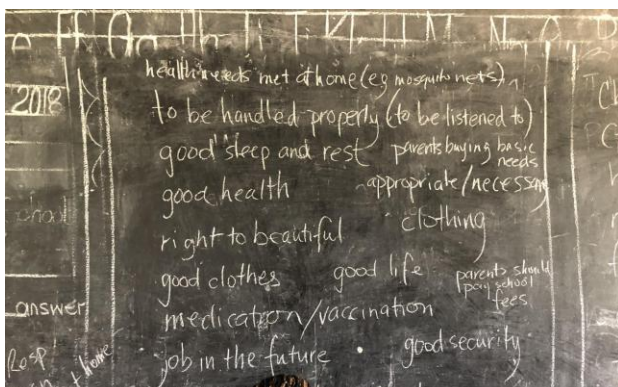 2018
health needs met at home (eg mosquito nets)
to be handled properly (to be listened to)
good sleep and rest
parents buying basic needs
good health
appropriate/necessary clothing
right to beautiful
good clothes
good life
parents should pay school fees
medication/vaccination
job in the future
good security
answer
Resp
home